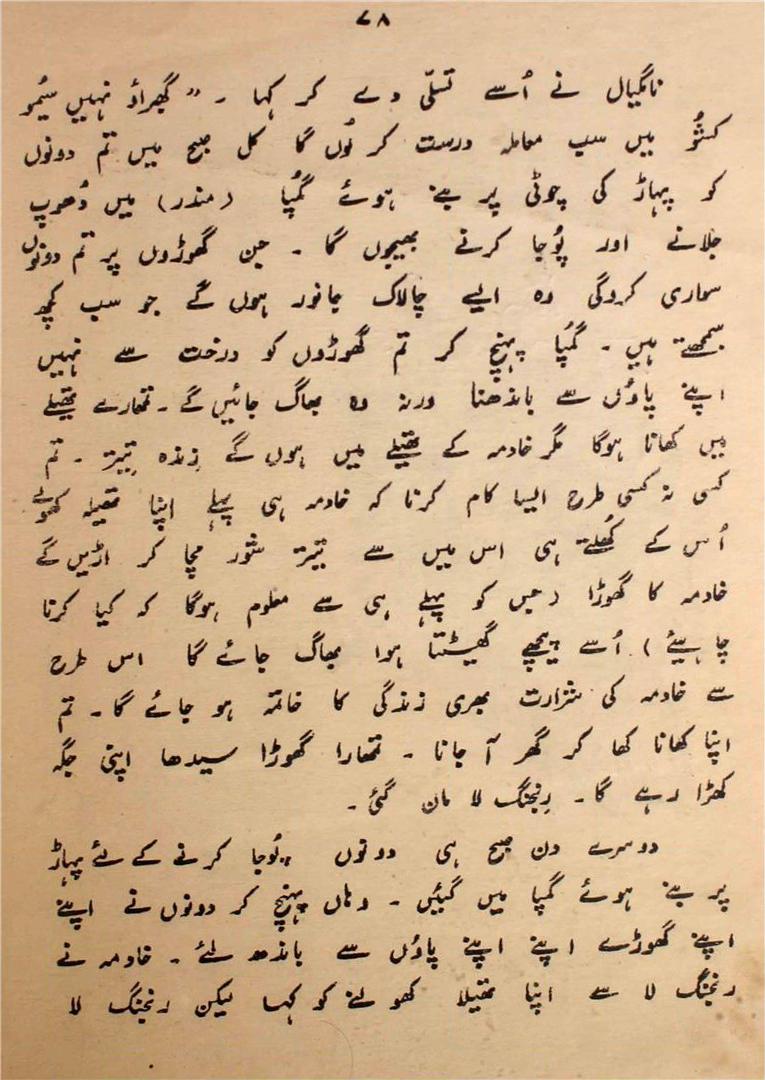 ۷۸
نانگیال نے اُسے تسلّی دے کر کہا ۔ "گھبراؤ نہیں سیُمو
کسٹوُ میں سب معاملہ درست کر لوُں گا کل صبح میں تم دونوں
کو پہاڑ کی چوٹی پر بنے ہوئے گمُپا (مندر) میں دُھوپ
جلانے اور پوُجا کرنے بھیجوں گا ۔ جن گھوڑوں پر تم دونوں
سواری کروگی وہ ایسے چالاک جانور ہوں گے جو سب کچھ
سمجھتے ہیں ۔ گمُپا پہنچ کر تم گھوڑوں کو درخت سے نہیں
اپنے پاؤں سے باندھنا ورنہ وہ بھاگ جائیں گے ۔ تمھارے تھیلے
میں کھانا ہوگا مگر خادمہ کے تھیلے میں ہوں گے زندہ تیتر ۔ تم
کسی نہ کسی طرح ایسا کام کرنا کہ خادمہ ہی پہلے اپنا تھیلہ کھولے
اُس کے کھُلتے ہی اس میں سے تیتر شور مچا کر اڑیں گے
خادمہ کا گھوڑا (جس کو پہلے ہی سے معلوم ہوگا کہ کیا کرنا
چاہیئے) اُسے پیچھے گھسیٹتا ہوا بھاگ جائے گا اس طرح
سے خادمہ کی شرارت بھری زندگی کا خاتمہ ہو جائے گا ۔ تم
اپنا کھانا کھا کر گھر آ جانا ۔ تمھارا گھوڑا سیدھا اپنی جگہ
کھڑا رہے گا ۔ رنجنگ لا مان گئی ۔
دوسرے دن صبح ہی دونوں پوُجا کرنے کے لئے پہاڑ
پر بنے ہوئے گمپا میں گئیں ۔ وہاں پہنچ کر دونوں نے اپنے
اپنے گھوڑے اپنے اپنے پاؤں سے باندھ لئے ۔ خادمہ نے
رنجنگ لا سے اپنا تھیلا کھولنے کو کہا لیکن رنجنگ لا